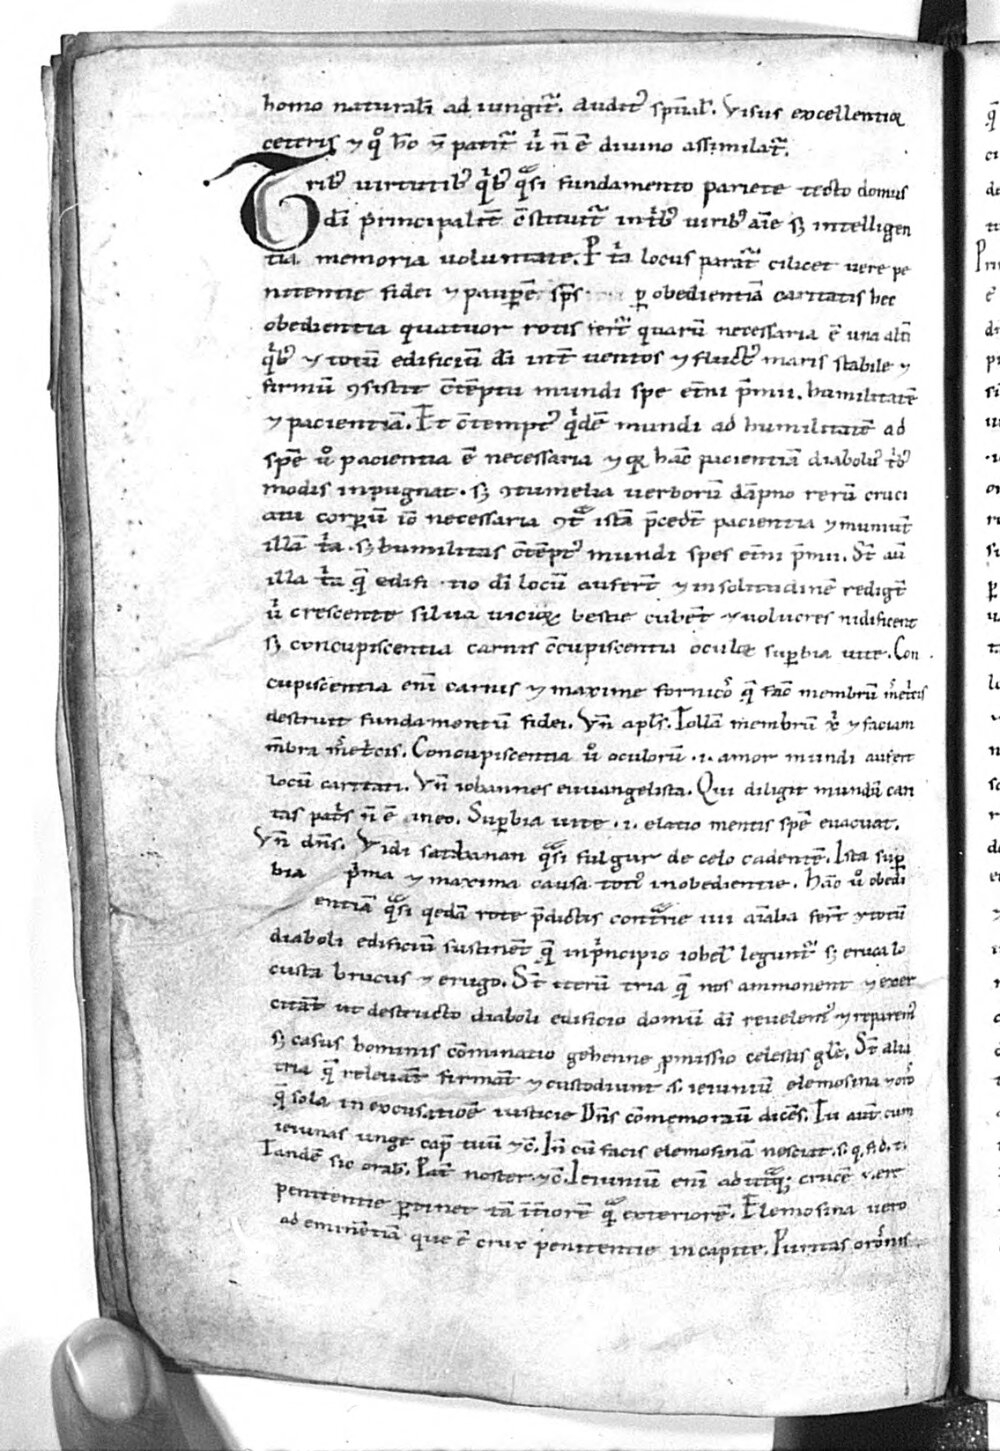 homo naturali ad iungit᷑. Auditꝰ sp̄ual̓. Visus excellentior
ceteris ⁊ q̊ h̊o ⁊ patit᷑ u̓ n̄ ē diuino assimilat᷑.
Tribꝰ uirtutibꝰ qͥbꝰ qᵃsi fundamento pariete tecto domus
dī principalit̄ c̄stituit᷑ in tͥbꝰ uiribꝰ aīe sꝫ intelligen
tia memoria uoluntate. locus parat᷑ cilicet uere pe
nitentie fidei ⁊ paupere sp̄s ꝑ obedientiā caritatis hec
obedientia quatuor rotis fert᷑ quarū necessaria ē una alt̓i
qͥbꝰ ⁊ totū edificiū dī int̄ uentos ⁊ fluctꝰ maris stabile ⁊
firmū ꝯsistit c̄tēptu mundi spe et̄ni p̄mii. humilitatē
⁊ pacientiā. Et c̄temptꝰ qͥdē mundi ad humilitatē ad
spē ů pacientia ē necessaria ⁊ hāc pacientiā diabolꝰ tͥbꝰ
modis inpugnat. sꝫ ꝯtumelia uerborū dāpno rerū cruci
atu corꝑū iō necessaria ꝯtᵃ istā p̄cedt̄ pacientia ⁊ muniunt̄
illā tͥa. sꝫ humilitas c̄tēptꝰ mundi spes et̄ni p̄mii. St̄ aū
illa tͥa q̄ edifi tio dī locū aufert̄ ⁊ in solitudinē redigt̄
u̓ crescente silua bestie cubent̄ ⁊ uolucres nidificent
sꝫ concupiscentia carnis c̄cupiscentia oculoꝝ suꝑbia uite. Con
cupiscentia eni carnis ⁊ maxime fornicō q̄ fac̄ membrū m̓etͥcis
destruit fundamentū fidei. Vn̄ apl̄s. Tollā membrū xͥ ⁊ faciam
m̄bra m̓etͥcis. Concupiscentia ů oculorū .i. amor mundi aufert
locū caritati. Vn̄ iohannes euuangelista. Qui diligit mundū cari
tas patͥs n̄ ē in eo. Suꝑbia uite .i. elatio mentis spē euacuat.
Vn̄ dn̄s. Vidi sathanan qᵃsi fulgur de celo cadentē. Ista suꝑ
bia pͥma ⁊ maxima causa totiꝰ inobedientie. hāc ů obedi
entiā qᵃsi qedā rote p̄dictis contrᵃrie iiii fert̄ ⁊ totū
diaboli edificiū sustinēt q̄ in pͥncipio iohel̓ legunt᷑ sꝫ eruca lo
custa brucus ⁊ erugo. St̄ iterū tria q̄ nos ammonent ⁊ exer
citāt ut destructo diaboli edificio domū dī reuelemꝰ ⁊ reparemꝰ
sꝫ casus hominis cōminatio gehenne ꝓmissio celestis gl̄e. St̄ alia
tria q̄ releuāt firmāt ⁊ custodiunt .s. ieiuniū elemosina ⁊ orō
q̄ sola in excusatiōe iusticie Dn̄s cōmemorauit dicēs. Tu aut̄ cum
ieiunas unge cap̄ tuū ⁊c̄. It̄ cū facis elemosinā nesciat .s. q. f. d. t.
Tandē sic orab̓. Pat̄ noster. ⁊c̄. Ieiuniū eni ad utrāqꝫ crucē
penitentie ꝑtinet tā īt̄iorē qᵃ exteriorē. Elemosina uero
ad eminētiā que ē crux penitentie in capite. Puritas orōnis